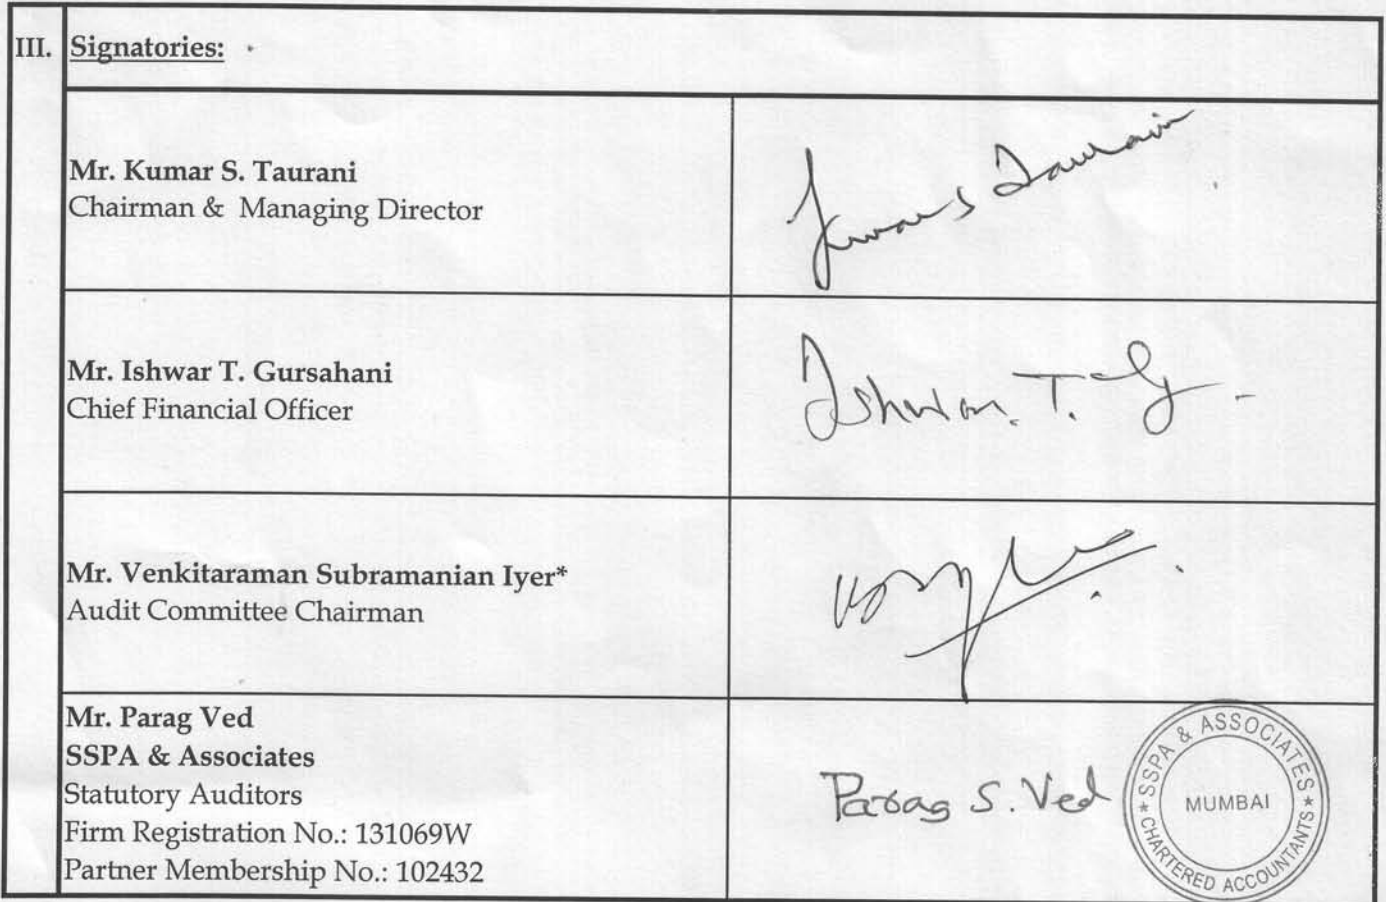 III. Signatories:
Mr. Kumar S. Taurani
Chairman & Managing Director
Kumar S Taurani
Mr. Ishwar T. Gursahani
Chief Financial Officer
Ishwar. T. G
Mr. Venkitaraman Subramanian Iyer*
Audit Committee Chairman
Mr. Parag Ved
SSPA & Associates
Statutory Auditors
Firm Registration No.: 131069W
Partner Membership No.: 102432
Parag S. Ved
* SSPA & ASSOCIATES *
MUMBAI
CHARTERED ACCOUNTANTS